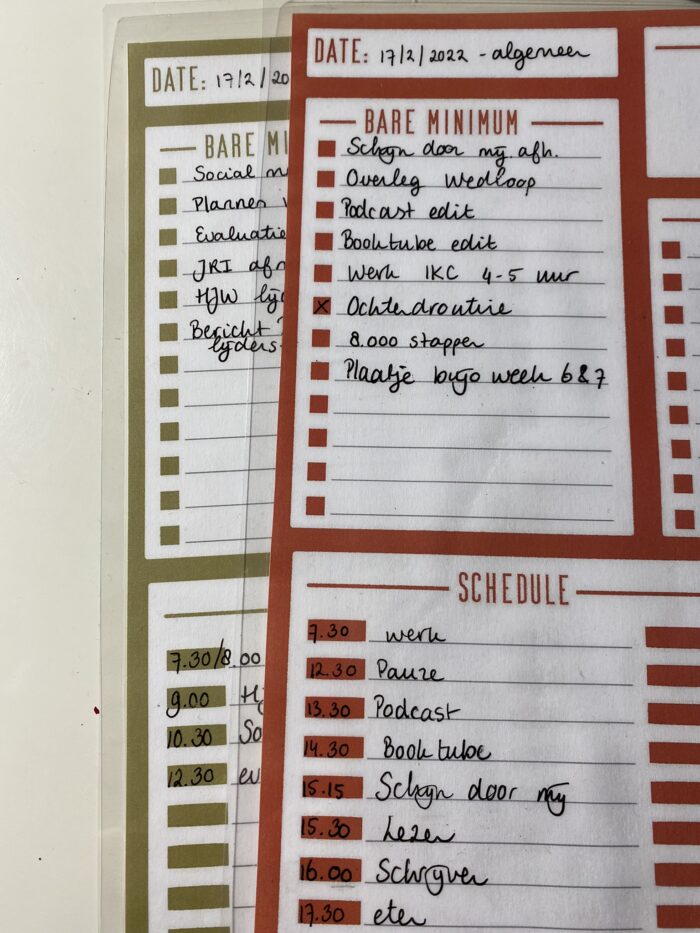 DATE: 17/2/20
BARE MI
Social m
Plannen
Evaluatie
JRI afr
HJW lijd
Bericht
lijders
7.30/8.00
9.00 Hj
10.30 So
12.30 ev
DATE: 17/2/2022 - algemeen
BARE MINIMUM
Schijn door mij afh.
Overleg Wedloop
Podcast edit
Booktube edit
Werk IKC 4-5 uur
x Ochtendroutine
8.000 stappen
Plaatje bujo week 6&7
SCHEDULE
7.30 werk
12.30 Pauze
13.30 Podcast
14.30 Booktube
15.15 Schijn door mij
15.30 Lezen
16.00 Schrijven
17.30 eten